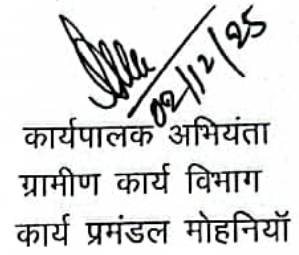 02/12/25
कार्यपालक अभियंता
ग्रामीण कार्य विभाग
कार्य प्रमंडल मोहनियॉ